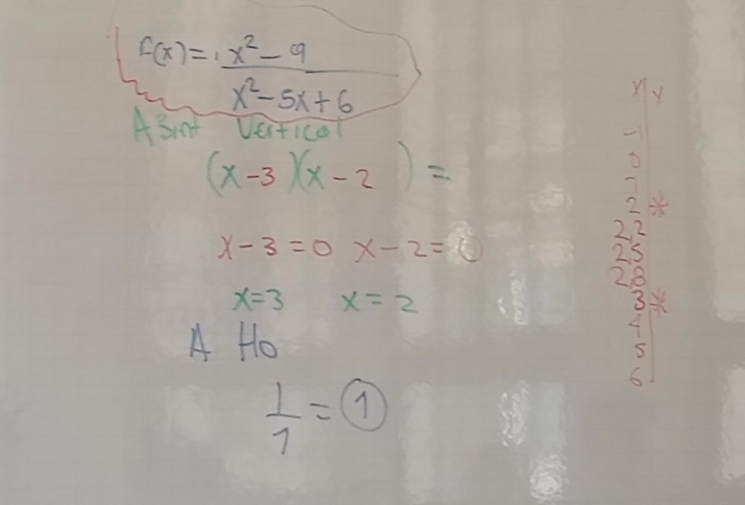 f(x) = x² - 9
x² - 5x + 6
Asint Vertical
(x - 3)(x - 2) =
x - 3 = 0 x - 2 = 0
x = 3 x = 2
A Ho
1
1 = 1
x y
-1
0
1
2 *
2,2
2,5
2,8
3 *
4
5
6